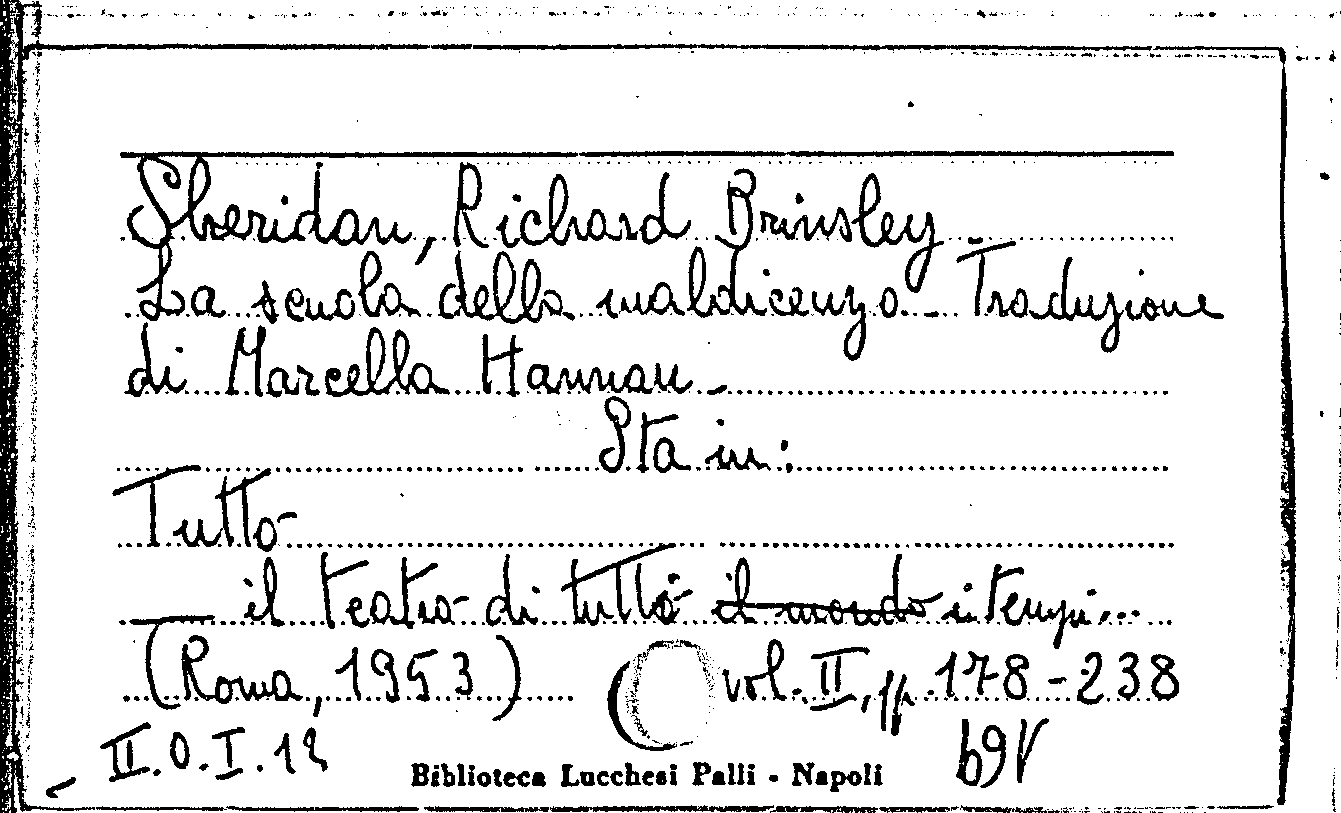 Sheridan, Richard Brinsley.
La scuola della maldicenza. Traduzione
di Marcella Hannau.
Sta in:
Tutto
___ il teatro di tutti il mondo i tempi...
(Roma, 1953) vol. II, pp. 178-238
II.O.I.12
Biblioteca Lucchesi Palli - Napoli